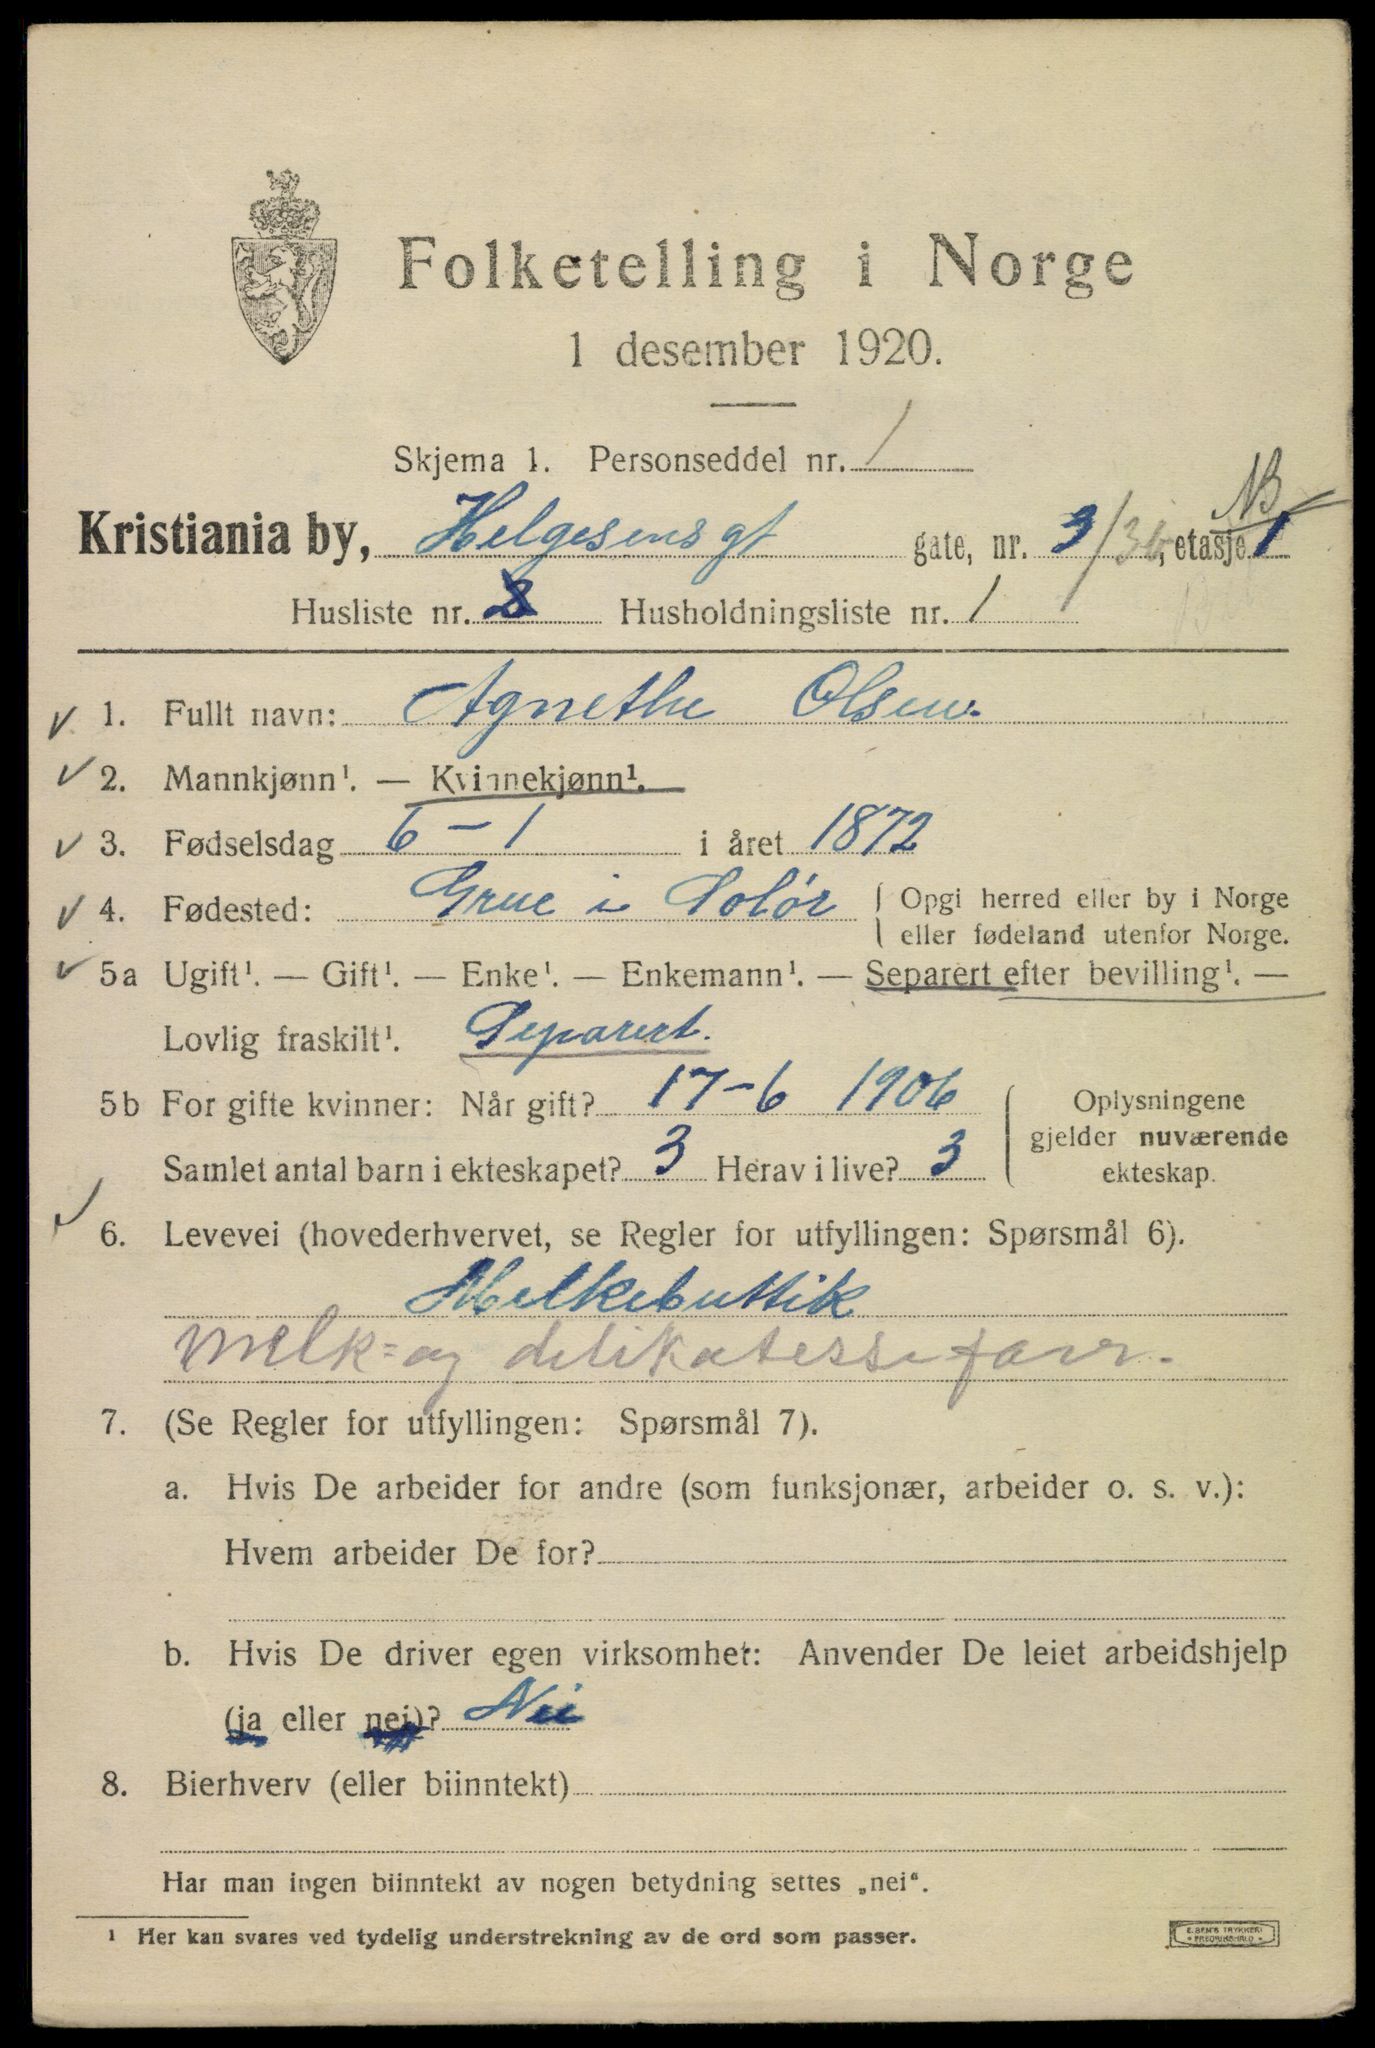 Folketelling i Norge
1 desember 1920.
Skjema 1. Personseddel nr. 1
Kristiania by, Helgesens gt gate, nr. 3/3b, etasje 1 NB
Husliste nr. Husholdningsliste nr. 1
✓ 1. Fullt navn: Agnethe Olsen.
✓ 2. Mannkjønn¹. — Kvinnekjønn¹.
✓ 3. Fødselsdag 6 – 1 i året 1872
✓ 4. Fødested: Grue i Solør Opgi herred eller by i Norge
eller fødeland utenfor Norge.
✓ 5a Ugift¹. — Gift¹. — Enke¹. — Enkemann¹. — Separert efter bevilling¹. —
Lovlig fraskilt¹. Separert.
5b For gifte kvinner: Når gift? 17-6 1906
Samlet antal barn i ekteskapet? 3 Herav i live? 3
Oplysningene
gjelder nuværende
ekteskap.
✓ 6. Levevei (hovederhvervet, se Regler for utfyllingen: Spørsmål 6).
Melkebuttik
melk= og delikatesseforr.
7. (Se Regler for utfyllingen: Spørsmål 7).
a. Hvis De arbeider for andre (som funksjonær, arbeider o. s. v.):
Hvem arbeider De for?
b. Hvis De driver egen virksomhet: Anvender De leiet arbeidshjelp
(ja eller nei)? Nei
8. Bierhverv (eller biinntekt)
Har man ingen biinntekt av nogen betydning settes „nei“.
¹ Her kan svares ved tydelig understrekning av de ord som passer.
E. SEM'S TRYKKERI
• FREDRIKSHALD •